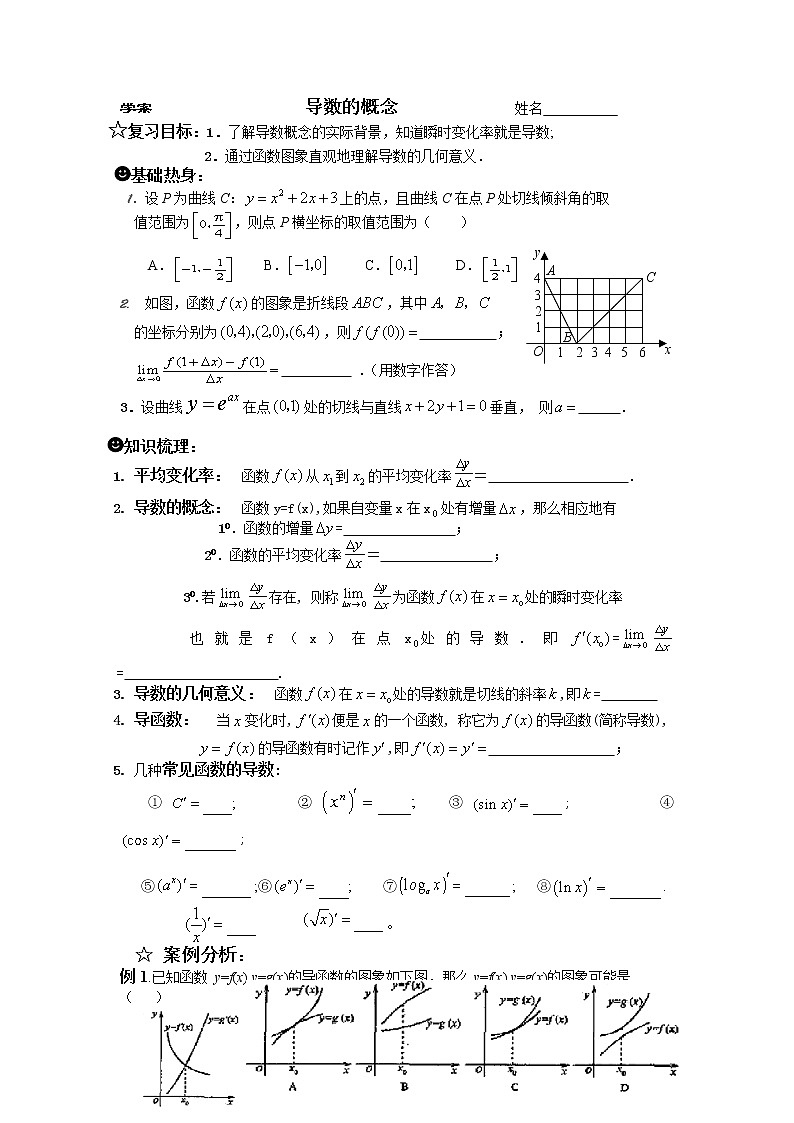 学案 导数的概念 姓名__________
☆复习目标:1.了解导数概念的实际背景,知道瞬时变化率就是导数;
2.通过函数图象直观地理解导数的几何意义.
☻基础热身:
1. 设 P 为曲线 C: y = x² + 2x + 3 上的点,且曲线 C 在点 P 处切线倾斜角的取
值范围为[0,π/4],则点 P 横坐标的取值范围为( )
A.[-1,-1/2] B.[-1,0] C.[0,1] D.[1/2,1]
2. 如图,函数 f(x) 的图象是折线段 ABC,其中 A, B, C
的坐标分别为 (0,4),(2,0),(6,4),则 f(f(0)) = __________;
lim Δx→0 (f(1+Δx) − f(1))/Δx = _________ .(用数字作答)
y
4 A C
3
2
1 B
O 1 2 3 4 5 6 x
3.设曲线 y = e^{ax} 在点 (0,1) 处的切线与直线 x + 2y + 1 = 0 垂直, 则 a = ______.
☻知识梳理:
1. 平均变化率: 函数 f(x) 从 x₁ 到 x₂ 的平均变化率 Δy/Δx = __________________.
2. 导数的概念: 函数 y=f(x),如果自变量 x 在 x₀ 处有增量 Δx,那么相应地有
1⁰.函数的增量 Δy = _______________;
2⁰.函数的平均变化率 Δy/Δx = _______________;
3⁰.若 lim Δx→0 Δy/Δx 存在, 则称 lim Δx→0 Δy/Δx 为函数 f(x) 在 x = x₀ 处的瞬时变化率
也就是 f(x)在点 x₀ 处的导数.即 f′(x₀) = lim Δx→0 Δy/Δx
=____________________.
3. 导数的几何意义: 函数 f(x) 在 x = x₀ 处的导数就是切线的斜率 k ,即 k = ________
4. 导函数: 当 x 变化时, f′(x) 便是 x 的一个函数, 称它为 f(x) 的导函数(简称导数),
y = f(x) 的导函数有时记作 y′ ,即 f′(x) = y′ = ________________;
5. 几种常见函数的导数:
① C′ = ____; ② (xⁿ)′ = ____; ③ (sin x)′ = ____; ④
(cos x)′ = _______;
⑤ (aˣ)′ = _______;⑥ (eˣ)′ = ____; ⑦ (logₐ x)′ = ______; ⑧ (ln x)′ = _______.
(1/x)′ = ____ (√x)′ = ____。
☆ 案例分析:
例 1.已知函数 y=f(x),y=g(x)的导函数的图象如下图,那么 y=f(x),y=g(x)的图象可能是
( )
y y=f′(x) y=g′(x) O x₀ x
y y=f(x) y=g(x) O x₀ x A
y y=f(x) y=g(x) O x₀ x B
y y=g(x) y=f(x) O x₀ x C
y y=g(x) y=f(x) O x₀ x D